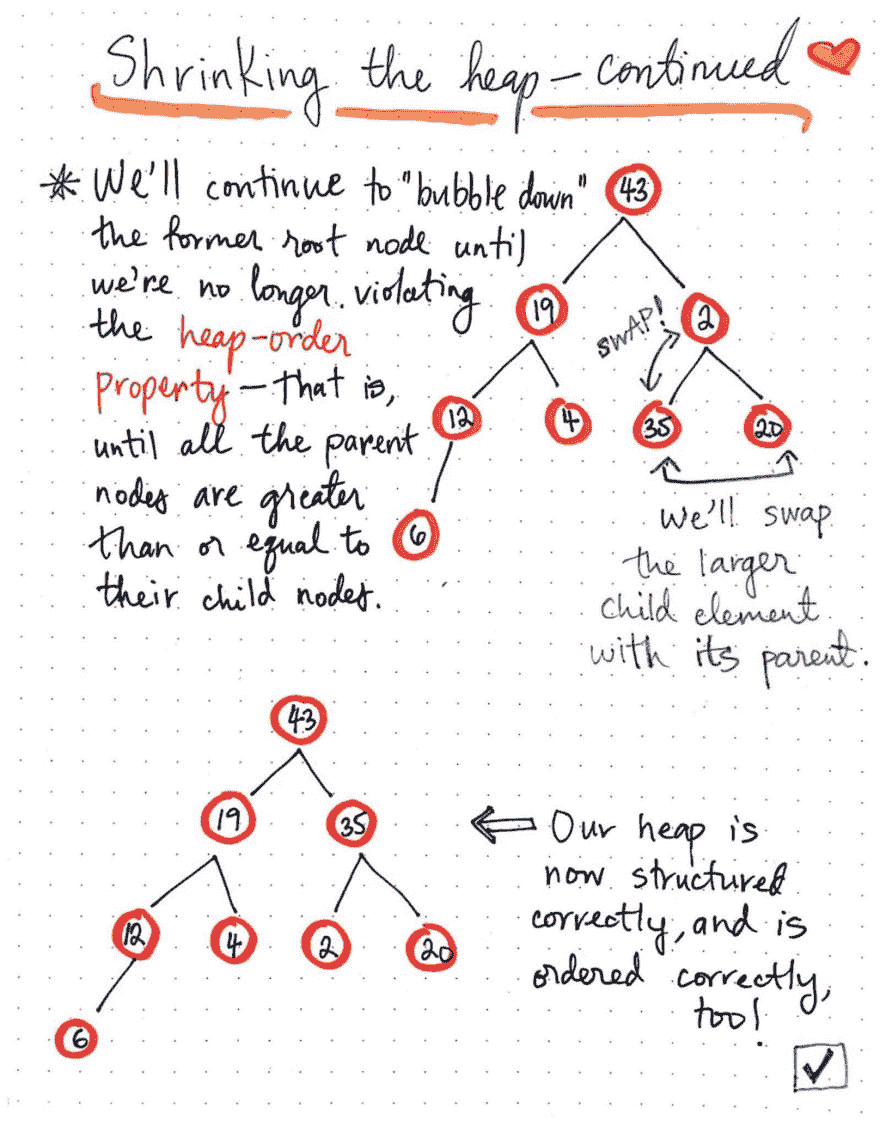 Shrinking the heap – continued
* We'll continue to "bubble down"
the former root node until
we're no longer violating
the heap-order
property – that is,
until all the parent
nodes are greater
than or equal to
their child nodes.
43
19
2
SWAP!
12
4
35
20
6
We'll swap
the larger
child element
with its parent.
43
19
35
12
4
2
20
6
⇐ Our heap is
now structured
correctly, and is
ordered correctly,
too!